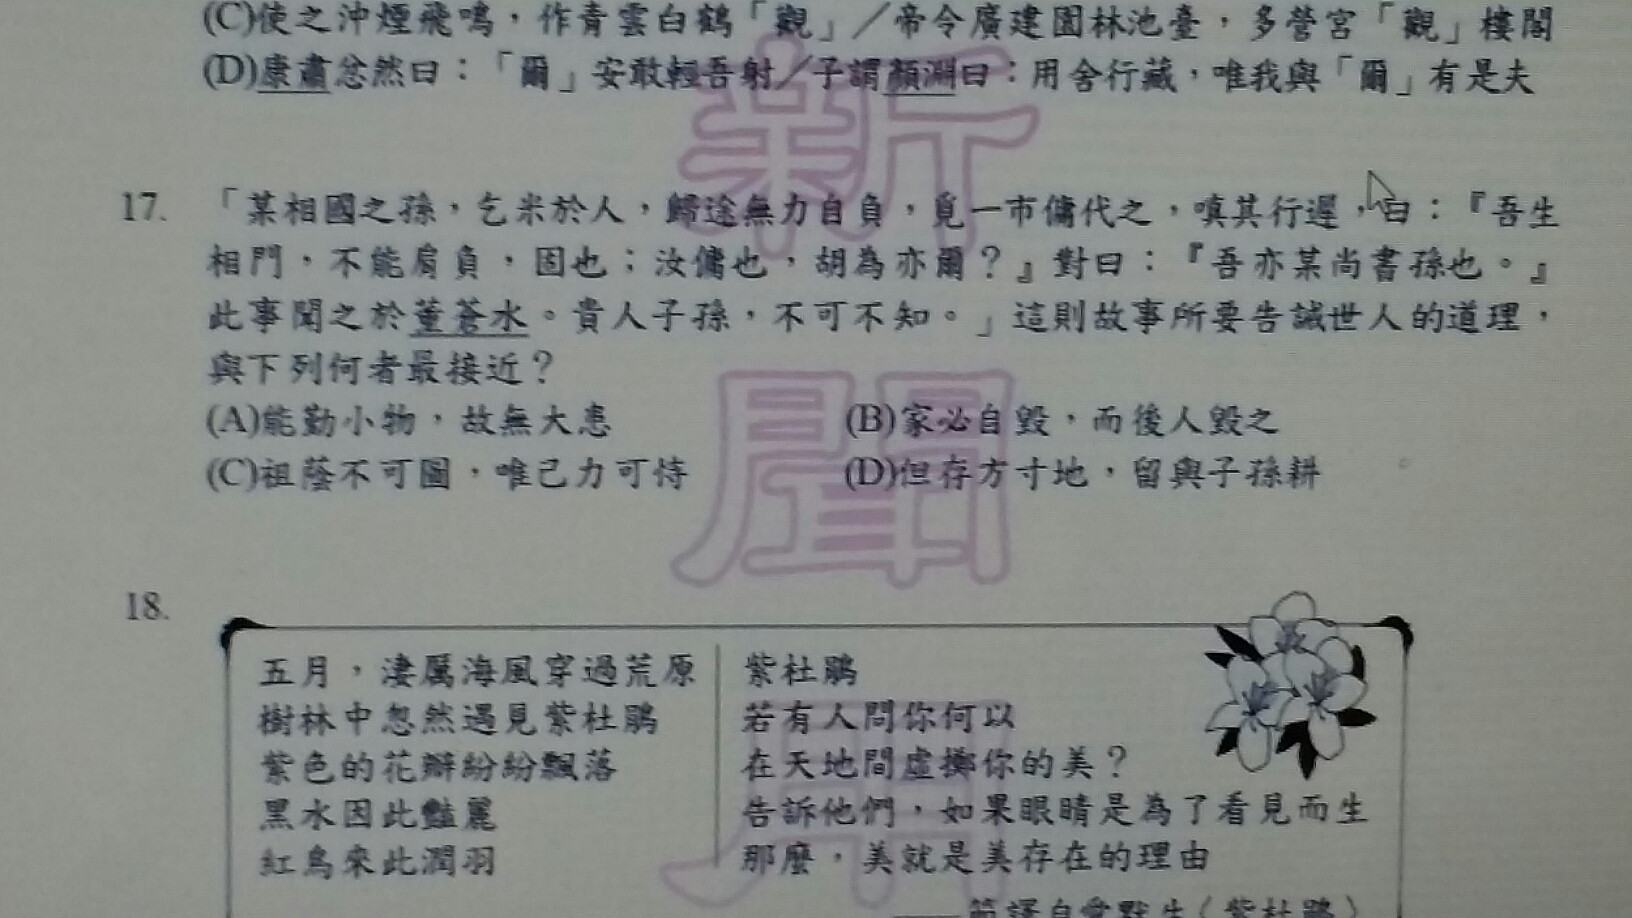 (C)使之沖煙飛鳴，作青雲白鶴「觀」／帝令廣建園林池臺，多營宮「觀」樓閣
(D)康肅忿然曰：「爾」安敢輕吾射／子謂顏淵曰：用舍行藏，唯我與「爾」有是夫
新
17. 「某相國之孫，乞米於人，歸途無力自負，覓一市傭代之，嗔其行遲，曰：『吾生
相門，不能肩負，固也；汝傭也，胡為亦爾？』對曰：『吾亦某尚書孫也。』
此事聞之於董蒼水。貴人子孫，不可不知。」這則故事所要告誡世人的道理，
與下列何者最接近？
(A)能勤小物，故無大患 (B)家必自毀，而後人毀之
(C)祖蔭不可圖，唯己力可恃 (D)但存方寸地，留與子孫耕
18.
五月，淒厲海風穿過荒原
樹林中忽然遇見紫杜鵑
紫色的花瓣紛紛飄落
黑水因此豔麗
紅鳥來此潤羽
紫杜鵑
若有人問你何以
在天地間虛擲你的美？
告訴他們，如果眼睛是為了看見而生
那麼，美就是美存在的理由
——節譯自愛默生〈紫杜鵑〉